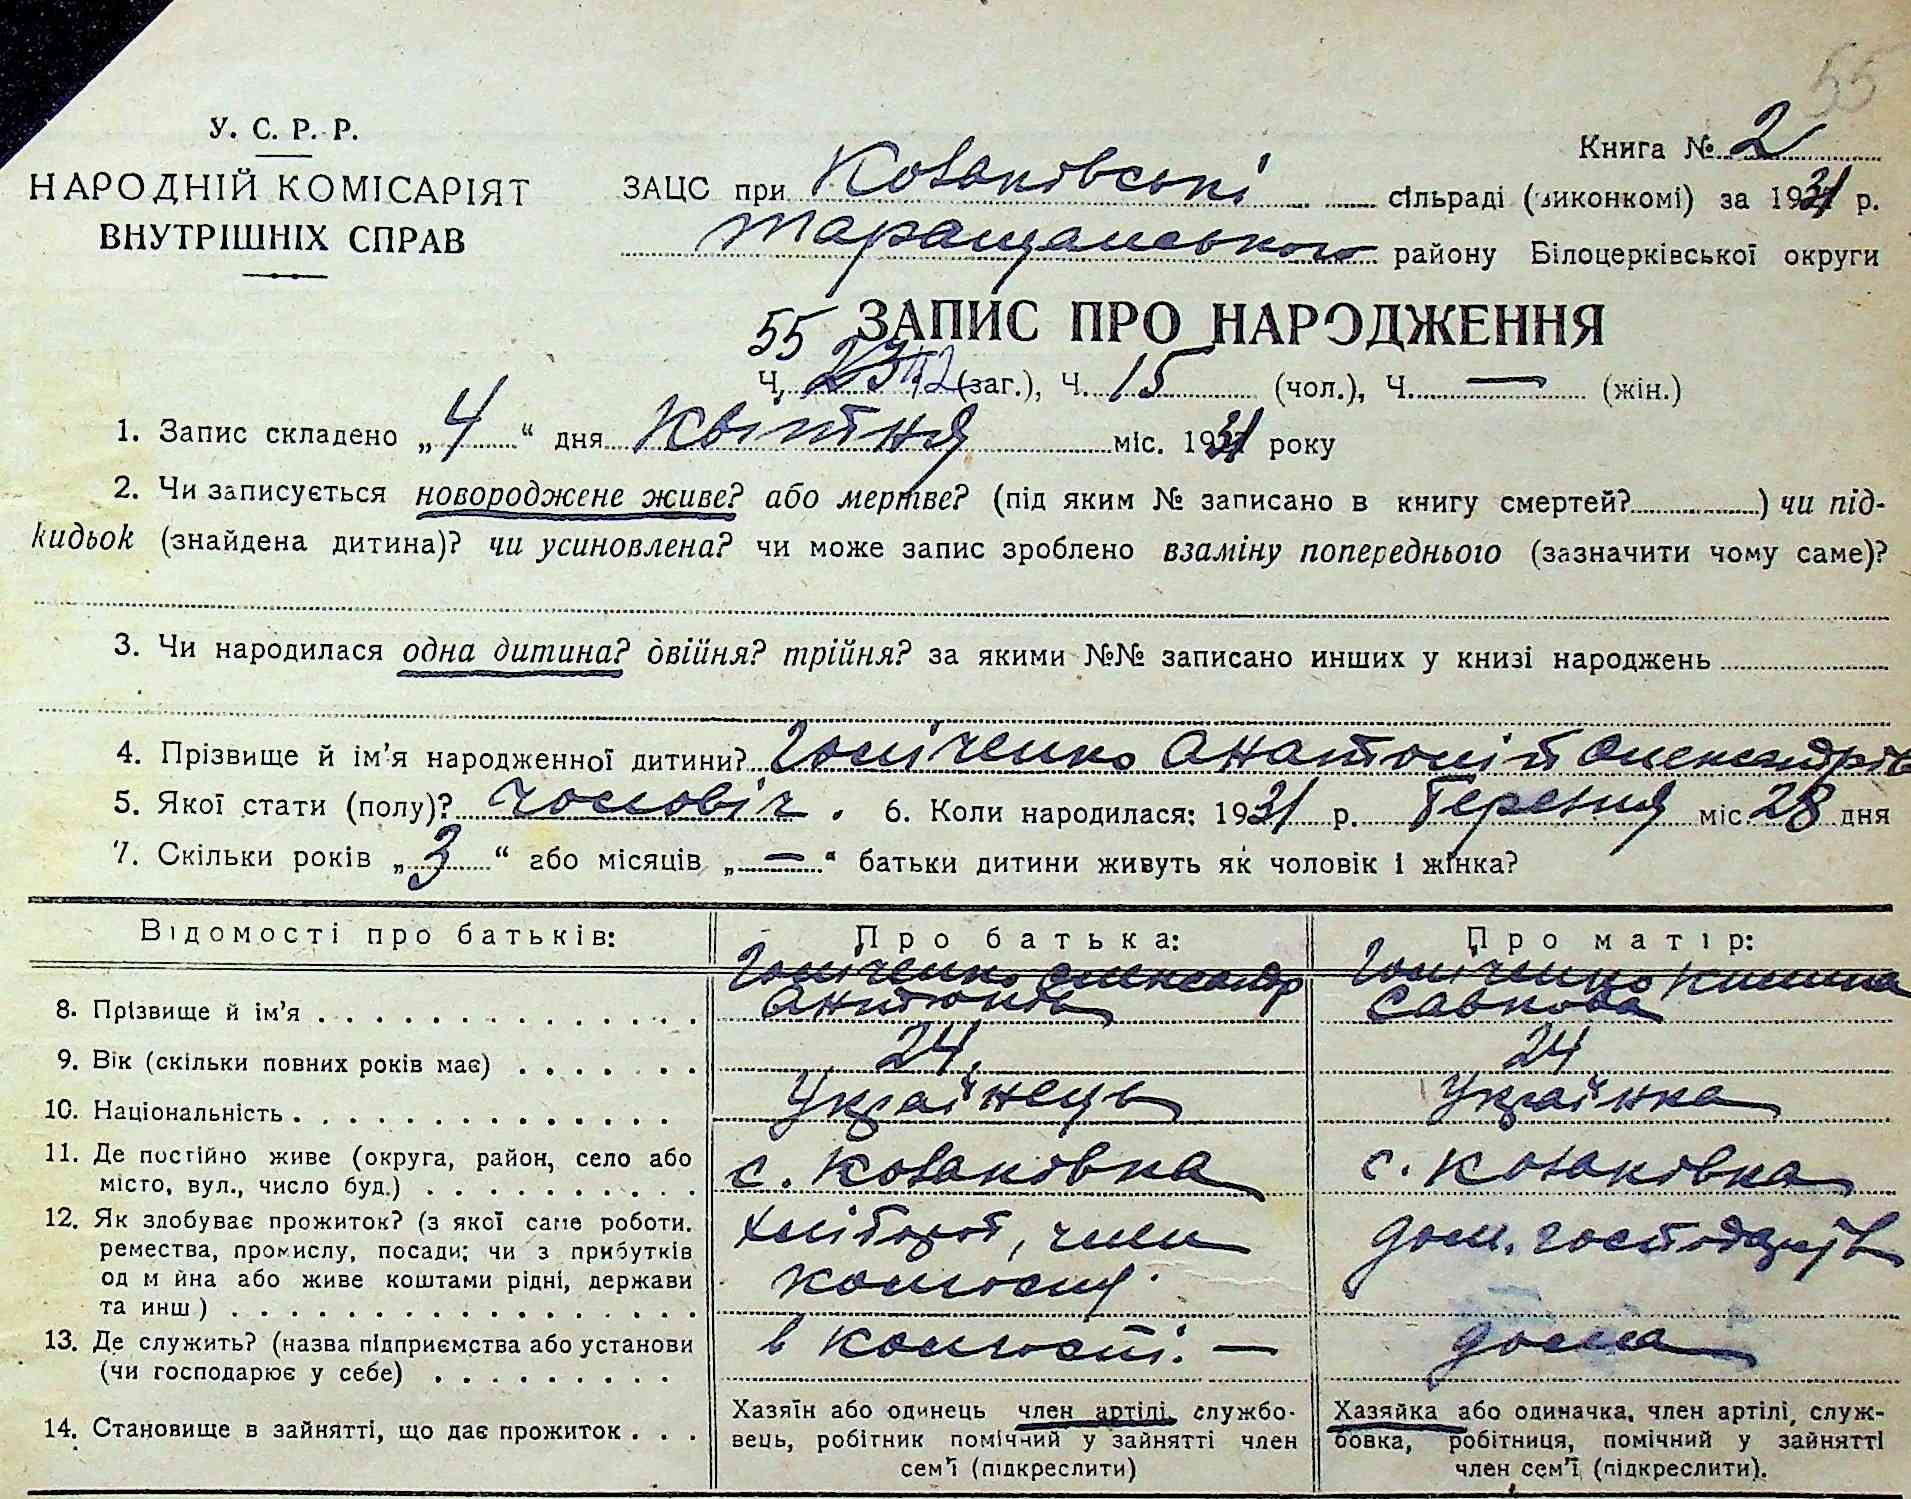 55
У. С. Р. Р.
НАРОДНІЙ КОМІСАРІЯТ
ВНУТРІШНІХ СПРАВ
Книга № 2
ЗАЦС при Козаківські сільраді (виконкомі) за 1931 р.
Таращанського району Білоцерківської округи
ЗАПИС ПРО НАРОДЖЕННЯ
55
Ч. (заг.), Ч. 15 (чол.), Ч. — (жін.)
1. Запис складено „4“ дня Квітня міс. 1931 року
2. Чи записується новороджене живе? або мертве? (під яким № записано в книгу смертей?) чи під-
кидьок (знайдена дитина)? чи усиновлена? чи може запис зроблено взаміну попереднього (зазначити чому саме)?
3. Чи народилася одна дитина? двійня? трійня? за якими №№ записано инших у книзі народжень
4. Прізвище й ім'я народженної дитини? Голіченко Анатолій Олександрів
5. Якої стати (полу)? чоловіч. 6. Коли народилася: 1931 р. Березня міс. 28 дня
7. Скільки років „3“ або місяців „—“ батьки дитини живуть як чоловік і жінка?
Відомості про батьків: Про батька: Про матір:
Голіченко Олександр Голіченко
8. Прізвище й ім'я Савкова
9. Вік (скільки повних років має) 24. 24
10. Національність Українець Українка
11. Де постійно живе (округа, район, село або с. Козаківка с. Козаківка
місто, вул., число буд.)
12. Як здобуває прожиток? (з якої саме роботи. хлібороб, член дом. господарів
ремества, промислу, посади; чи з прибутків колгоспу
од м йна або живе коштами рідні, держави
та инш)
13. Де служить? (назва підприємства або установи в колгоспі. — дома
(чи господарює у себе)
14. Становище в зайнятті, що дає прожиток Хазяїн або одинець член артілі, службо- Хазяйка або одиначка, член артілі, служ-
вець, робітник помічний у зайнятті член бовка, робітниця, помічний у зайнятті
сем'ї (підкреслити) член сем'ї (підкреслити).